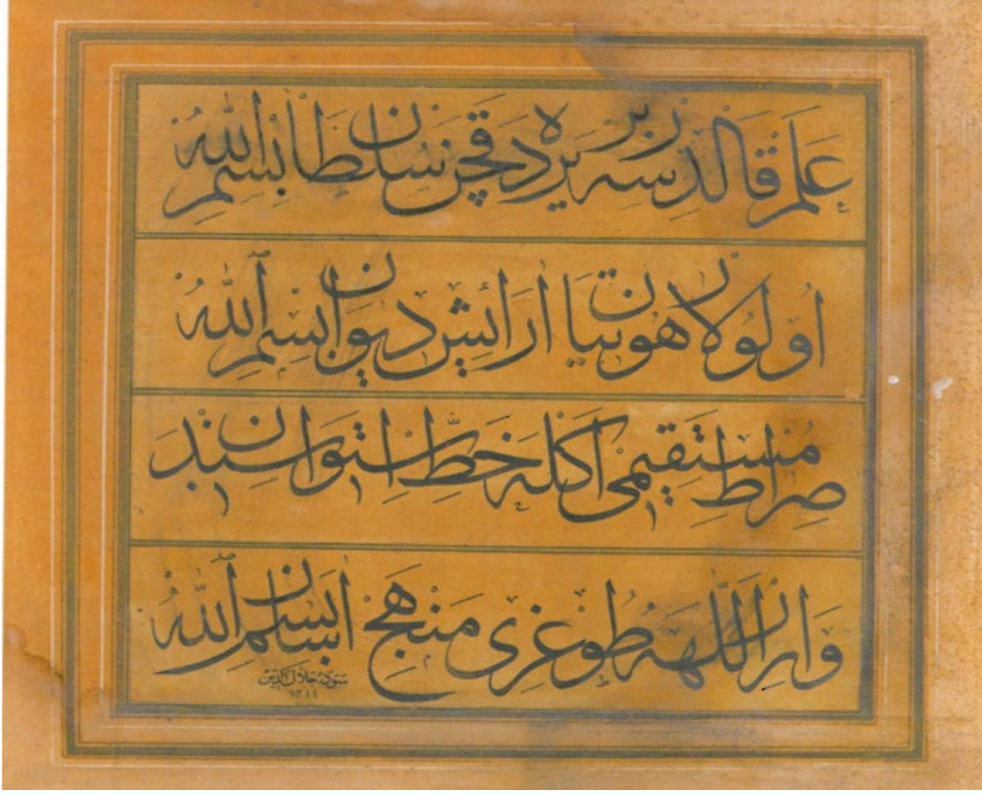 علم قالدرسه بر يرده قچن سلطان بسم الله
اولور لاهوتيان ارائش ديوان بسم الله
صراط مستقيمى اكله خط استواسندن
وارر اللهه طوغرى منهج اسان بسم الله
سوده جلال الدين
١٢١١